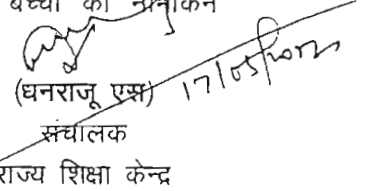 बच्चों का नामांकन
(धनराजू एस)
17/05/2022
संचालक
राज्य शिक्षा केन्द्र